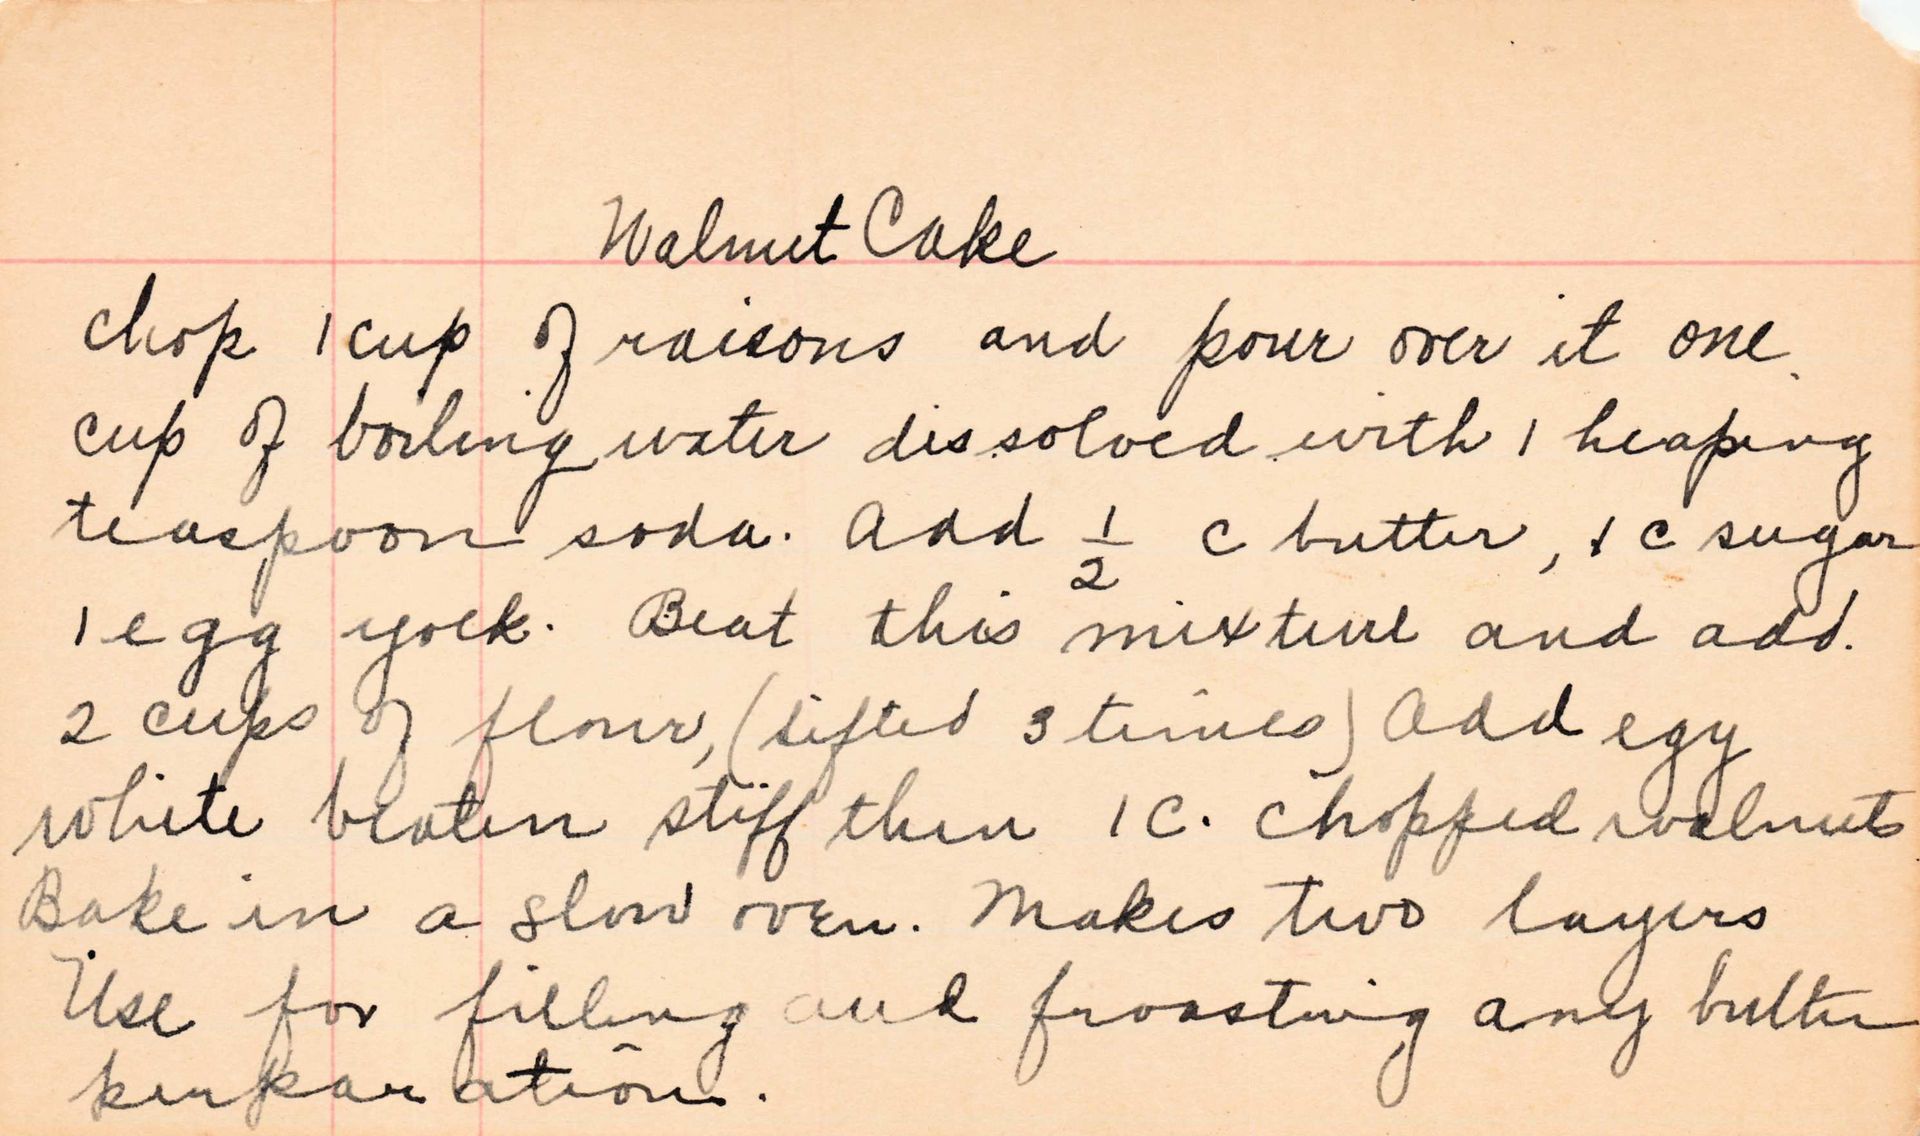 Walnut Cake
Chop 1 cup of raisons and pour over it one
cup of boiling water dissolved with 1 heaping
teaspoon soda. Add 1/2 c butter, 1 c sugar
1 egg yoek. Beat this mixture and add.
2 cups of flour, (sifted 3 times) Add egg
white beaten stiff then 1 C. chopped walnuts
Bake in a slow oven. Makes two layers
Use for filling and froasting any butter
perparation.